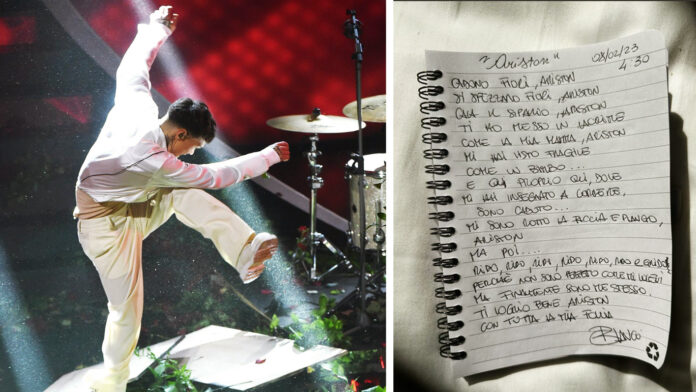 "Ariston" 08/02/23
4:30
CADONO FIORI, ARISTON
SI SPEZZANO FIORI, ARISTON
QUA IL SIPARIO, ARISTON
TI HO MESSO IN LACRIME
COME LA MIA MAMMA, ARISTON
MI HAI VISTO FRAGILE
COME UN BIMBO...
E QUI PROPRIO QUI, DOVE
MI HAI INSEGNATO A CORRERE,
SONO CADUTO...
MI SONO ROTTO LA FACCIA E PIANGO,
ARISTON
MA POI....
RIDO, RIDO, RIDO, RIDO, RIDO, RIDO
PERCHÈ NON SONO PERFETTO COME MI VOLEVI
MA FINALMENTE SONO ME STESSO.
TI VOGLIO BENE ARISTON
CON TUTTA LA MIA FOLLIA
BLANCO